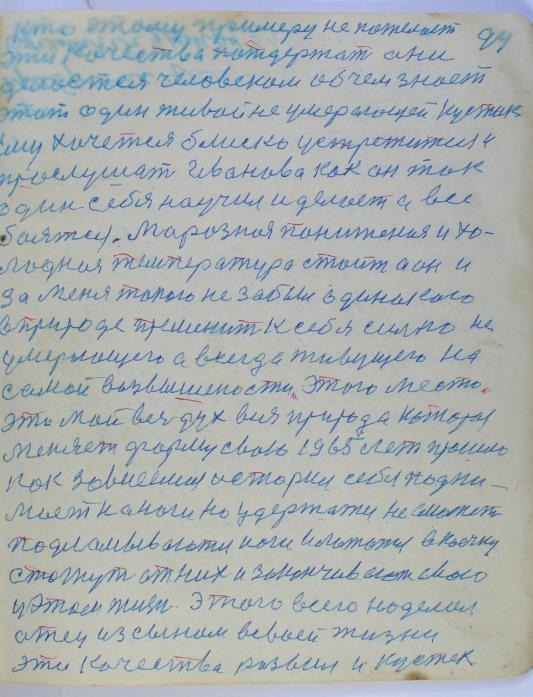 кто этому примеру не пожелает 94
эти качества потдержат они
делаются человеком об чем знает
этот один живой не умерающей кустик
ему хочется блиско устретится и
прослушат Иванова как он так
один себя научил и делает а все
боятся. Марозная понижения и хо-
лодная температура стоит а он и
за меня торого не забыл одинакого
в природе применит к себя силно не
умерающего а всегда живущего на
самой возвышености. Этого место
это мой вездух вся природа которая
меняет форму свою 1965 лет прошло
как зовшемся история себя подни-
мает на ноги но удержатя не сможет
подламываются ноги и ложатя в коечку
стогнут от них и заканчивают свою
у этом жизн. Этого всего наделал
отец из сыном в своей жизни
эти качества развил и кустек